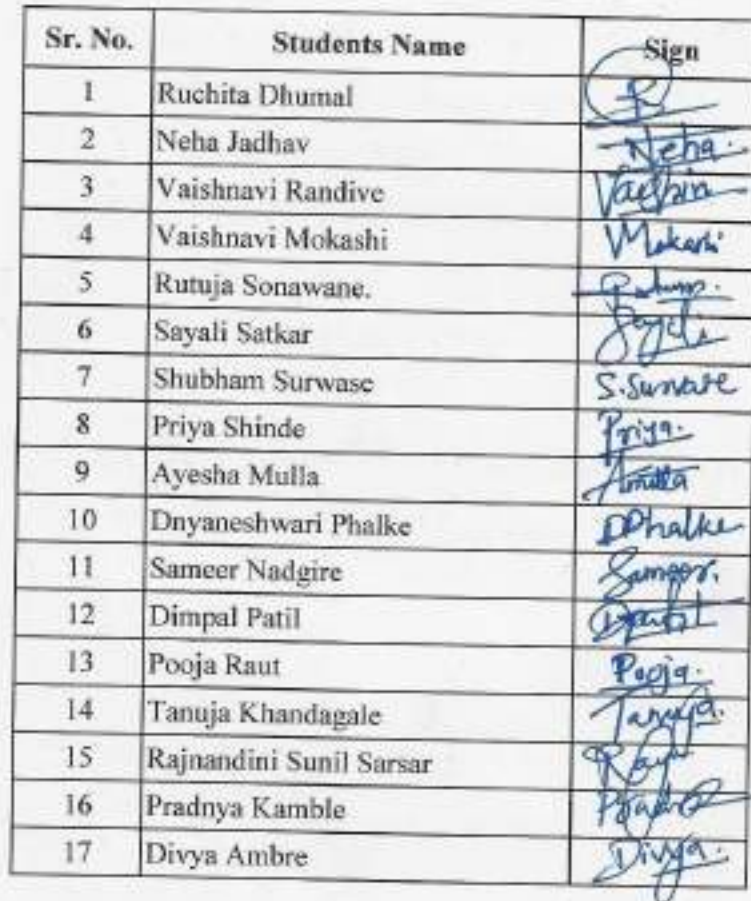 Sr. No. Students Name Sign
1 Ruchita Dhumal
2 Neha Jadhav Neha.
3 Vaishnavi Randive
4 Vaishnavi Mokashi Mokashi
5 Rutuja Sonawane.
6 Sayali Satkar Sayali
7 Shubham Surwase S.Surwase
8 Priya Shinde Priya.
9 Ayesha Mulla AMulla
10 Dnyaneshwari Phalke DPhalke
11 Sameer Nadgire Sameer.
12 Dimpal Patil
13 Pooja Raut Pooja.
14 Tanuja Khandagale Tanuja.
15 Rajnandini Sunil Sarsar
16 Pradnya Kamble
17 Divya Ambre Divya.